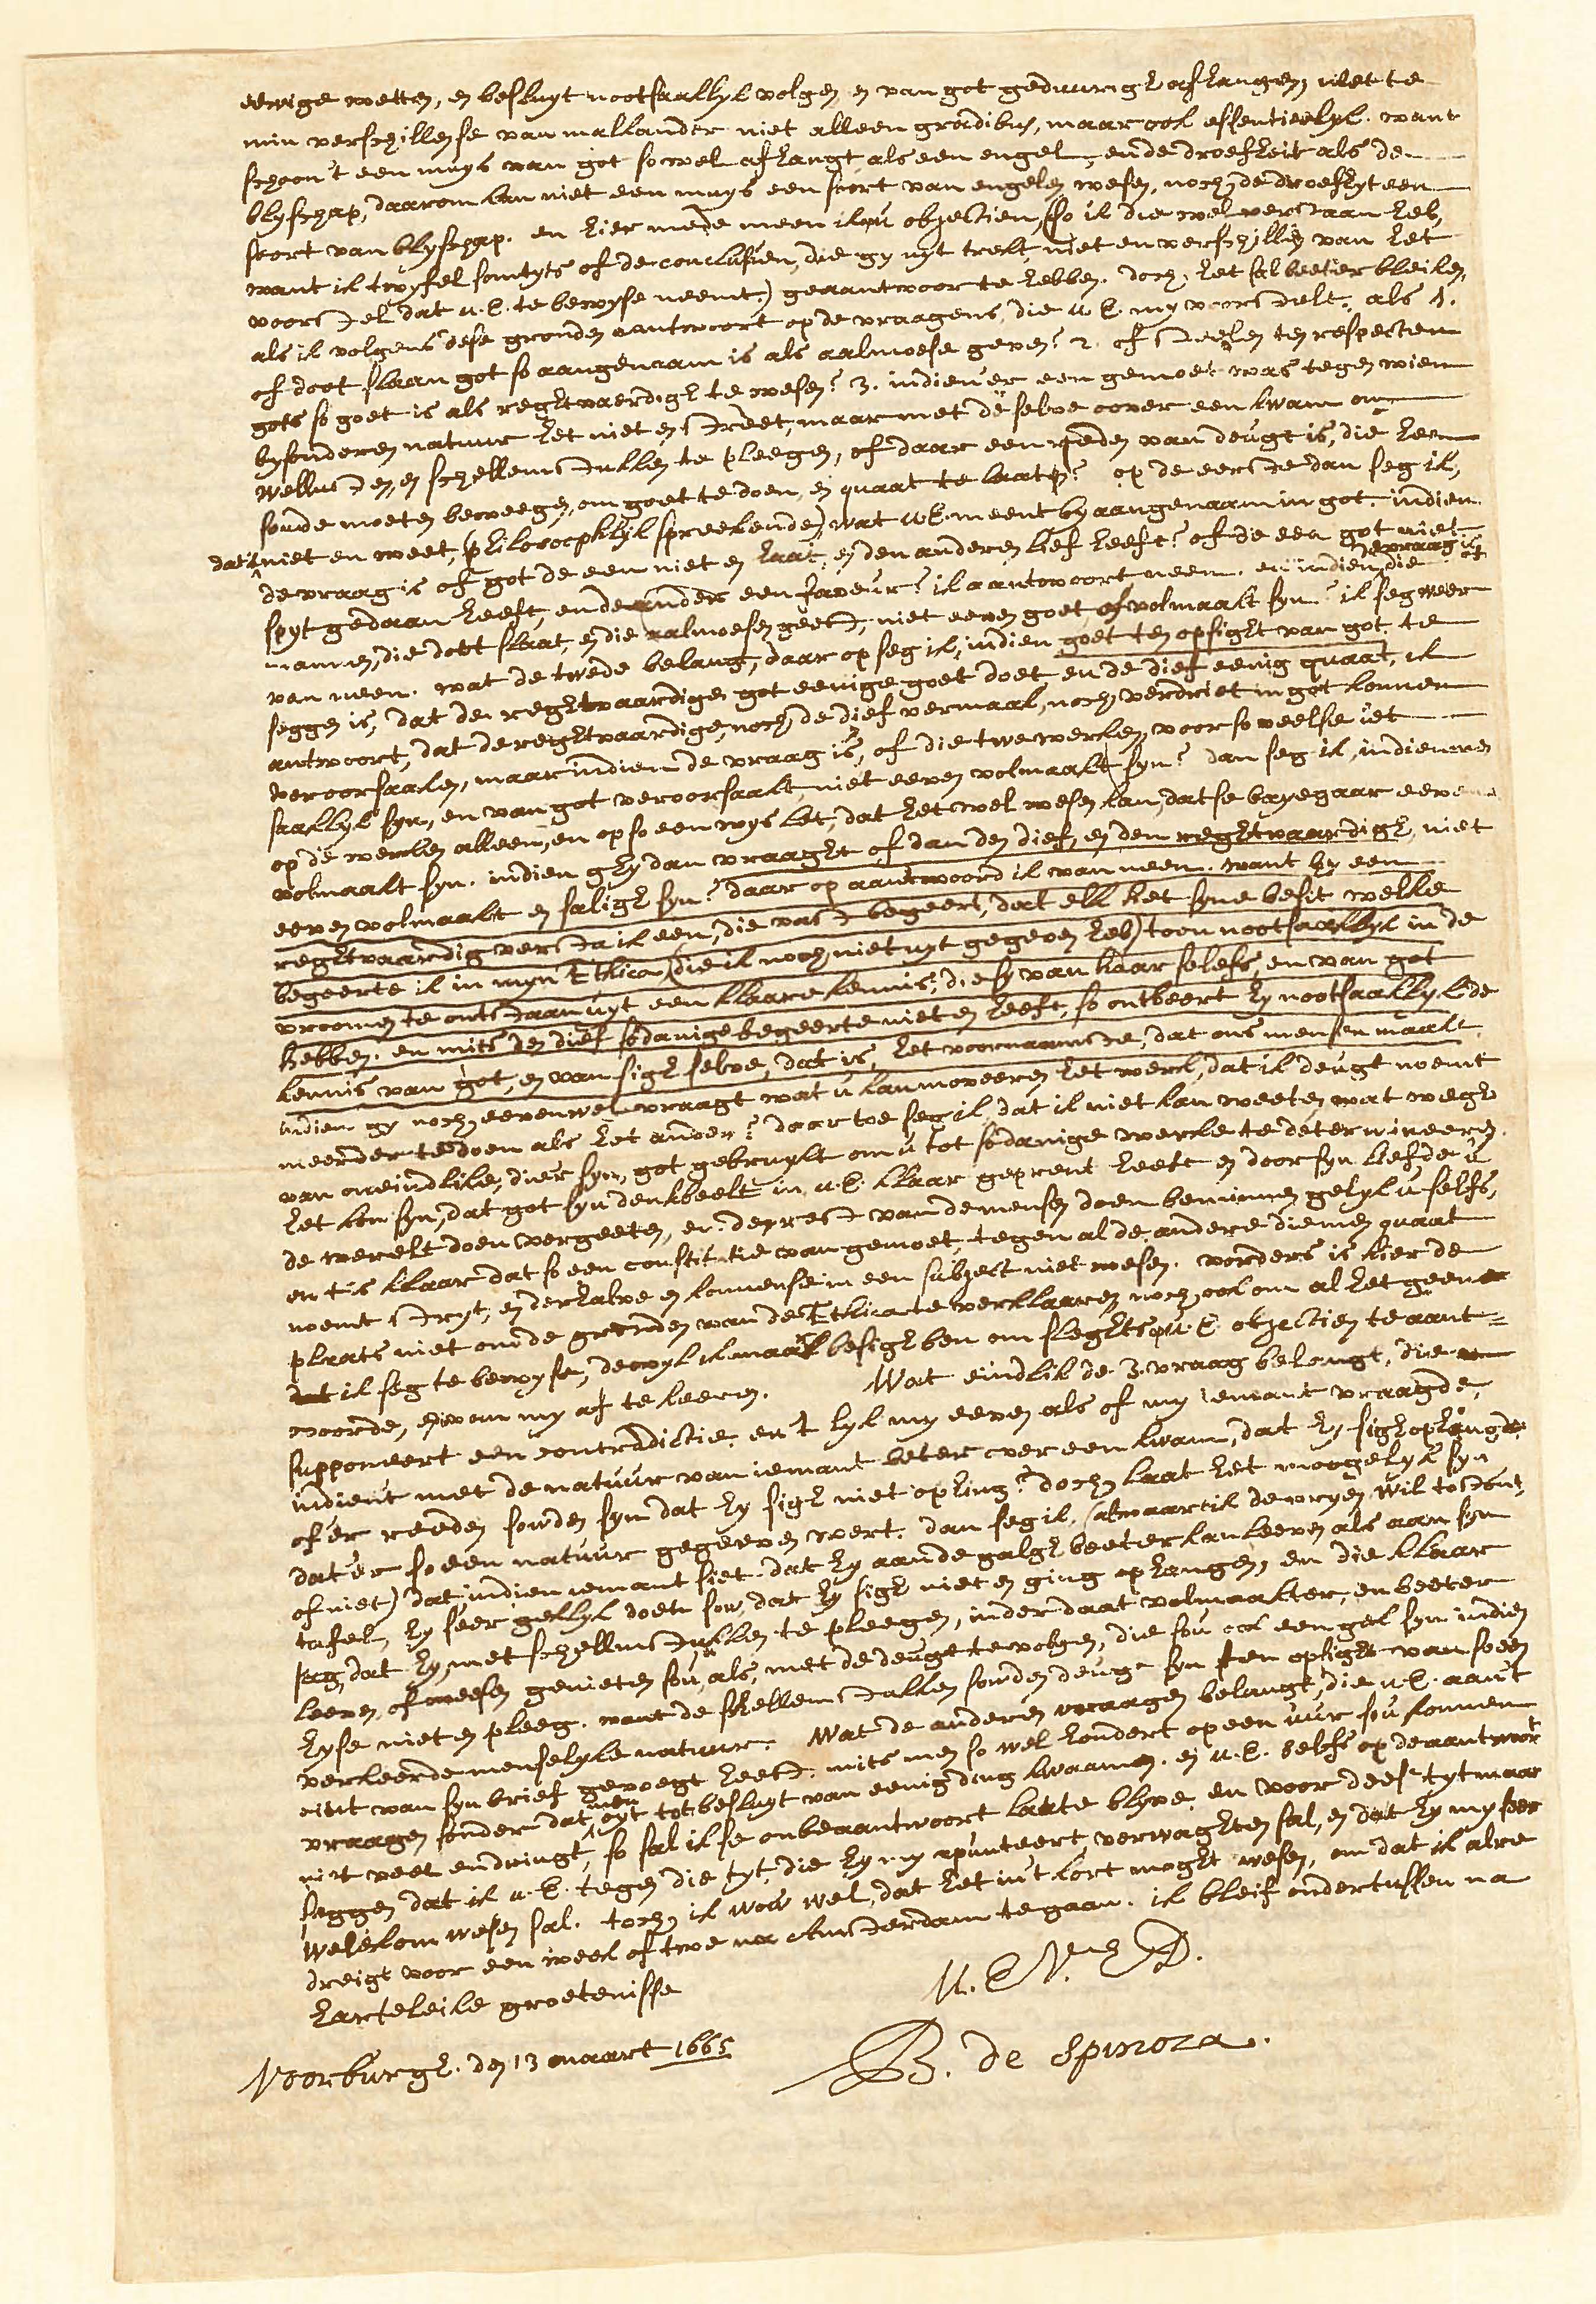 eewige wetten, en besluyt nootsaaklyk volgen en van got geduurigh afhangen, niet te
min verschillense van malkander niet alleen gradibus, maar ook essentieelyk. want
schoon 't een muys van got so wel afhangt als een engel, en de droefheit als de
blyschap, daarom kan niet een muys een soort van engelen wesen, noch de droefhyt een
soort van blyschap. en hier mede meen ik uw objectien, (so ik die wel verstaan heb,
want ik twyfel somtyts of de conclusien, die gy uyt trekt, niet en verschillen van het
voorstel dat u.E. te bewyse neemt.) geantwoort te hebben. doch het sal beeter bleiken,
als ik volgens dese gronden antwoort op de vraagens, die u.E. my voorstelt: als 1.
of doot slaan got so aangenaam is als aalmoese geven? 2. of steelen ten respecten
gots so goet is als reghtvaerdigh te wesen? 3. indien 'er een gemoet was tegen wiens
bysonderen natuur het niet en street, maar met de selve oover een kwam om
wellusten, en schellemstukken te pleegen, of daar een reeden van deugt is, die hem
soude moeten beweegen, om goet te doen, en quaat te laaten? op de eerste dan seg ik,
dat ik niet en weet, (philosoophlyk spreekende) wat u.E. meent by aangenaam in got. indien
de vraag is of got de een niet en haat, en den anderen lief heeft? of de een got niet
spyt gedaan heeft, en de ander een faveur? ik antwoort neen. en indien de vraag is, of
mannen, die doot slaat, en die aalmoesen geeft, niet eeven goet, of volmaakt syn? ik seg weer
van neen. wat de twede belang, daar op seg ik, indien goet ten opsight van got te
seggen is, dat den reghtvaardige got eenige goet doet en de dief eenig quaat, ik
antwoort, dat de reghtvaardige, noch de dief vermaak, noch verdriet in got konnen
veroorsaaken, maar indien de vraag is, of die twe werken, voor so veel se iet
saaklyk syn, en van got veroorsaakt, niet eeven volmaakt syn? dan seg ik, indien men
op de werken alleen, en op so een wys let, dat het wel wesen kan, datse bayegaar eeven
volmaakt syn. indien ghy dan vraaght of dan den dief, en den reghtvaardigh, niet
eeven volmaakt en saligh syn? daar op aantwoord ik van neen. want by een
reghtvaardig versta ik een, die vast begeert, dat elk het syne besit welke
begeerte ik in myn Ethica, (die ik noch niet uyt gegeven heb) toon nootsaaklyk in de
vroomen te ontstaan uyt een klaare kennis, die sy van haar selefs, en van got
hebben. en mits den dief sodanige begeerte niet en heeft, so ontbeert hy nootsaaklyk de
kennis van got, en van sigh selve, dat is, het voornaamste, dat ons mensen maakt.
indien gy noch eevenwel vraagt wat u kan moveeren het werk, dat ik deugt noemt
meerder te doen als het ander? daar toe seg ik dat ik niet kan weeten wat wegh
van oneindlike, dier syn, got gebruykt om u tot sodanige werke te determineeren.
het kon syn, dat got syn denkbeelt in u.E. klaar geprent heeft en door syn liefde u
de werelt doen vergeeten, en de rest van de mensen doen beminnen gelyk u selfs,
en tis klaar dat so een constitutie van gemoet tegen al de andere die men quaat
noemt stryt, en derhalve en konnense in een subject niet wesen. vorders is hier de
plaats niet om de gronden van de Ethica te verklaaren noch ook om al het geen
ik seg te bewyse, dewyl ik maar besigh ben om sleghts op u.E. objectien te aant=
woorde, en van my af te keeren. Wat eindlik de 3. vraag belangt, die
supponeert een contradictie. en 't lyk my eeven als of my iemant vraagde,
indient met de natuur van iemant beter over een kwam, dat hy sigh ophangde
of er reeden souden syn dat hy sigh niet ophing? doch laat het mogelyk syn
dat'er so een natuur gegeeven wert. dan seg ik, (alwaart ik de vryen wil toestont,
of niet) dat, indien iemant siet dat hy aan de galgh beeter kan leeven als aan syn
tafel, hy seer gekkyk doen sou, dat hy sigh niet en ging ophangen, en die klaar
sag, dat hy, met schellemstukken te pleegen, inder daat volmaakter, en beeter
leeven of weesen genieten sou, als, met de deugt te volgen, die sou ook een gek syn indien
hyse niet en pleeg. want de schellemstukken souden deugt syn ten opsight van so een
verkeerde menselyke natuur. Wat de anderen vraagen belangt, die u.E. aan 't
eint van syn brief gevoegt heeft, mits men so wel hondert op een uur sou konnen
vraagen sonder dat men oyt tot besluyt van eenig ding kwaamen. en u.E. selefs op de aantwoort
niet veel en dringt, so sal ikse onbeaantwoort laate blyve. en voor deese tyt maar
seggen dat ik u.E. tegen die tyt, die hy my apunteert verwaghten sal, en dat hy my seer
welekom wesen sal. toch ik wou wel, dat het in't kort moght wesen, om dat ik alre
dreigt voor een week of twe na Amsterdam te gaan. ik bleif ondertussen na
harteleike groetenisse
U.E. D.
B. de Spinoza.
Voorburgh. den 13 maart 1665